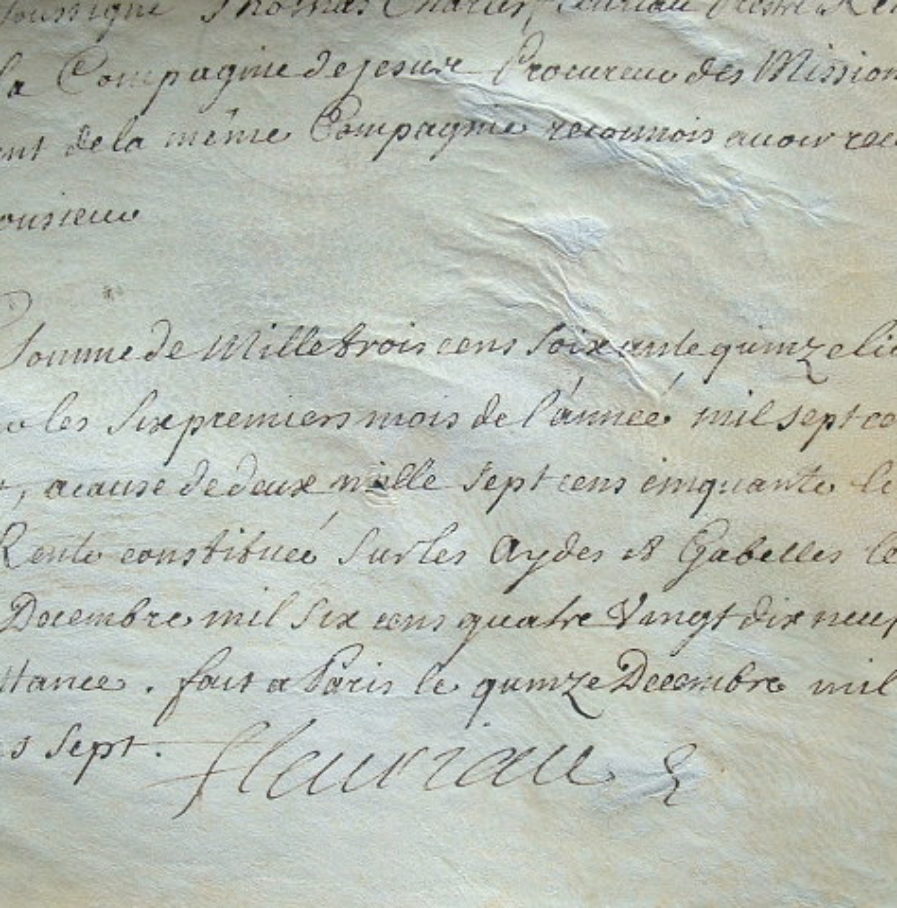 soussigné Thomas Charles fleuriau Prestre Rel
la Compagnie de jesus Procureur des Mission
ant de la même Compagnie reconnois avoir rec
onsieur
Somme de Mille trois cens soixante quinze li
les six premiers mois de l'année mil sept ce
, acause de deux mille sept cens cinquante li
Rente constituée sur les Aydes et Gabelles le
Decembre mil six cens quatre Vingt dix neuf
ttance. fait a Paris le quinze Decembre mil
s sept. fleuriau